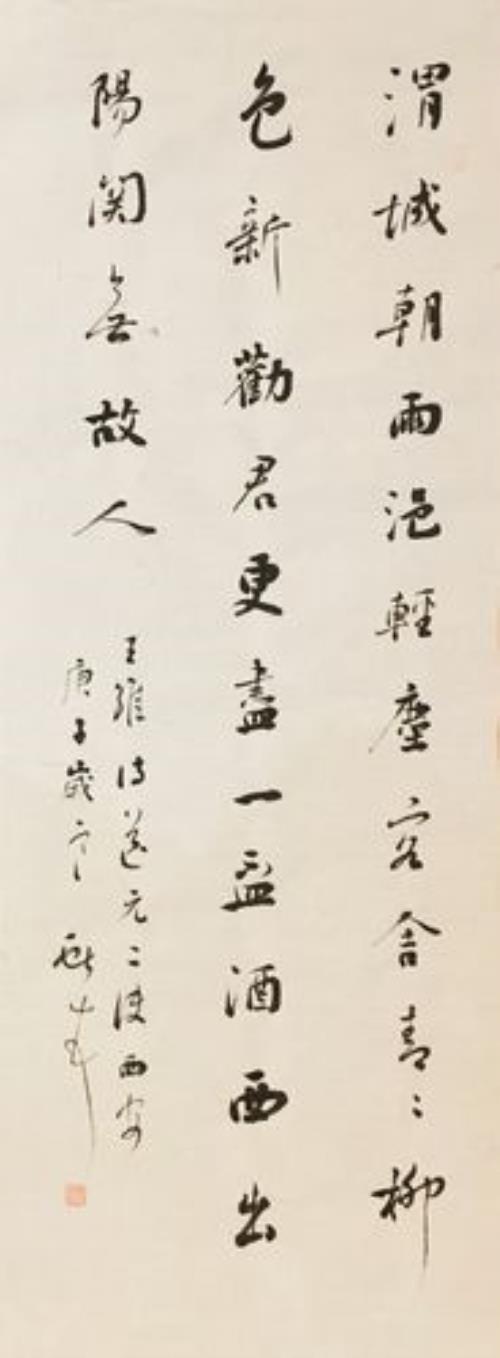 渭城朝雨浥輕塵客舍青〻柳
色新勸君更盡一盃酒西出
陽関無故人
王維詩送元二使西安
庚子歲